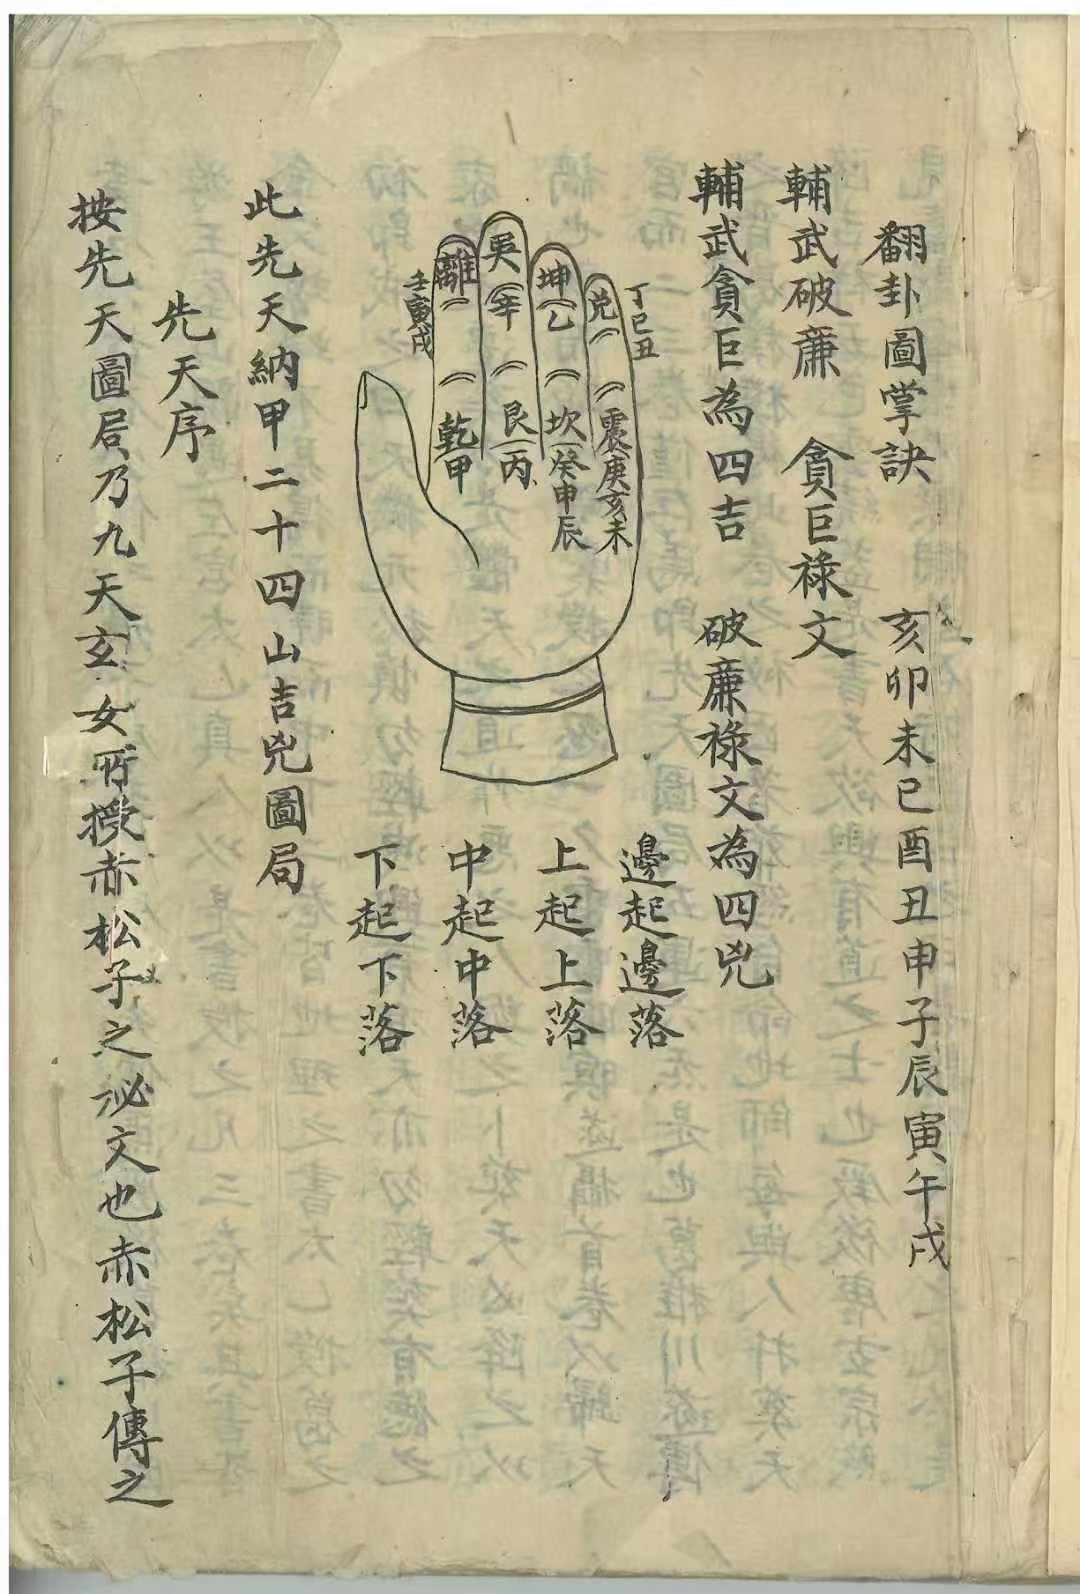 翻卦圖掌訣　亥卯未巳酉丑申子辰寅午戌
輔武破廉　貪巨祿文
輔武貪巨為四吉　破廉祿文為四兇
丁巳丑
兌
震庚亥未
坤乙
坎癸申辰
巽辛
艮丙
離
乾甲
壬寅戌
邊起邊落
上起上落
中起中落
下起下落
此先天納甲二十四山吉兇圖局
先天序
按先天圖局乃九天玄女所授赤松子之祕文也赤松子傳之